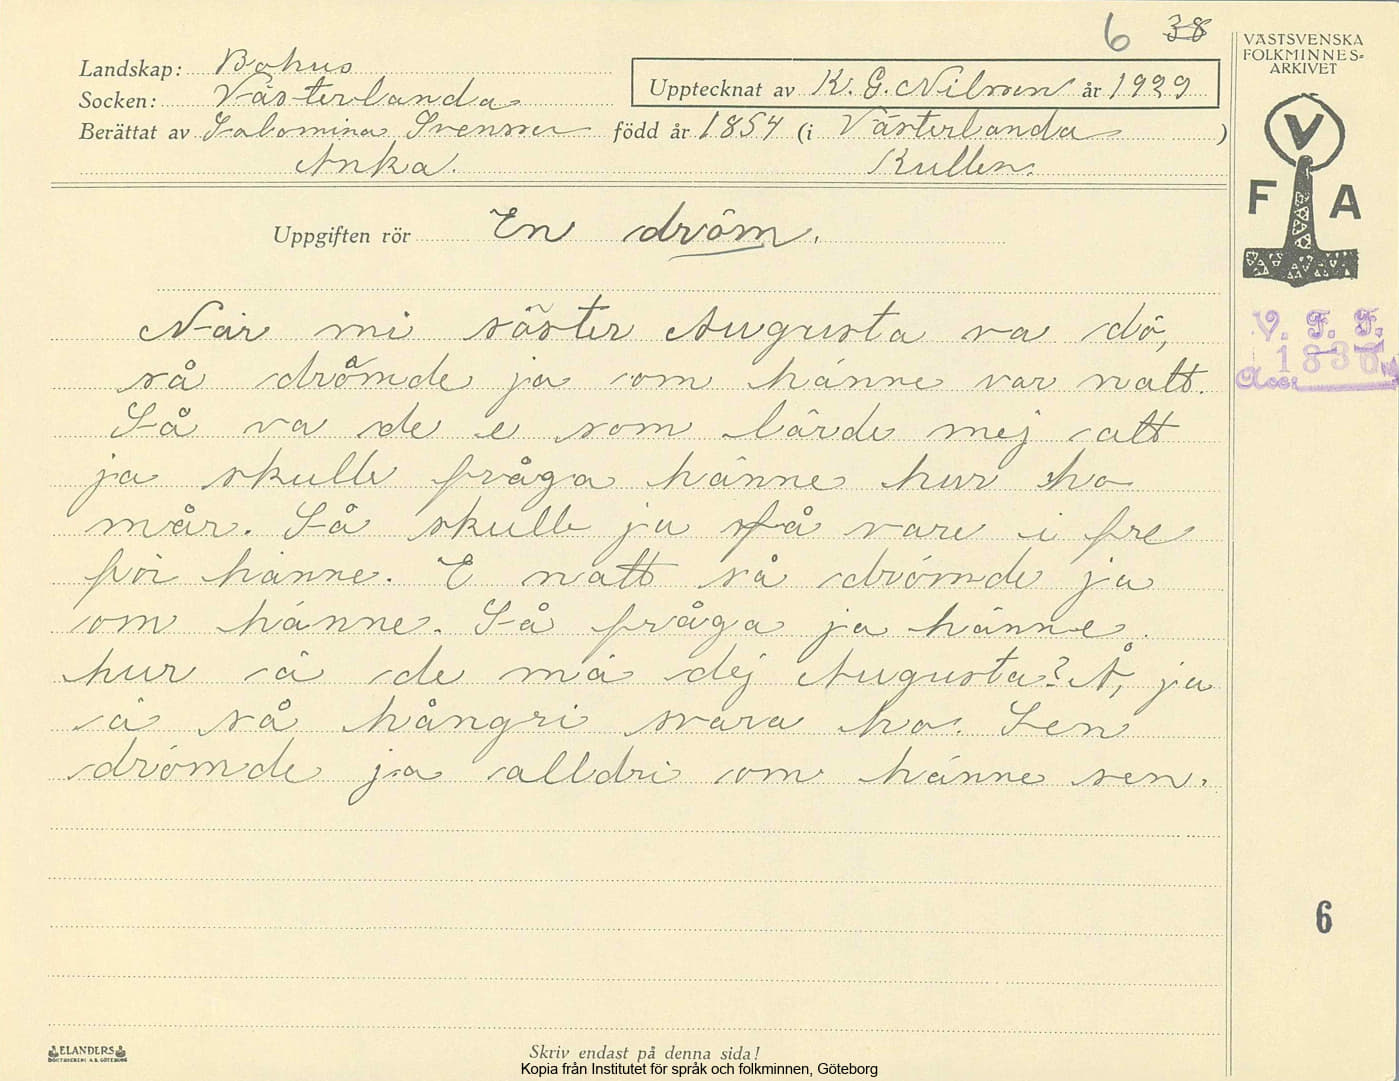 6 38
Landskap: Bohus
Socken: Västerlanda
Upptecknat av K. G. Nilsson år 1929
Berättat av Salomina Svensson född år 1854 (i Västerlanda )
Anka. Kullen.
Uppgiften rör En dröm.
När mi söster Augusta va dö,
så drömde ja om hänne var natt.
Så va de e som lärde mej att
ja skulle fråga hänne hur ho
mår. Så skulle ja få vare i fre
för hänne. E natt så drömde ja
om hänne. Så fråga ja hänne.
hur ä de mä dej Augusta? Å, ja
ä så hångri svara ho. Sen
drömde ja alldri om hänne sen.
VÄSTSVENSKA
FOLKMINNES-
ARKIVET
V
F A
V. F. F.
1836
Acc:
6
ELANDERS
BOKTRYCKERI A.B. GÖTEBORG
Skriv endast på denna sida!
Kopia från Institutet för språk och folkminnen, Göteborg